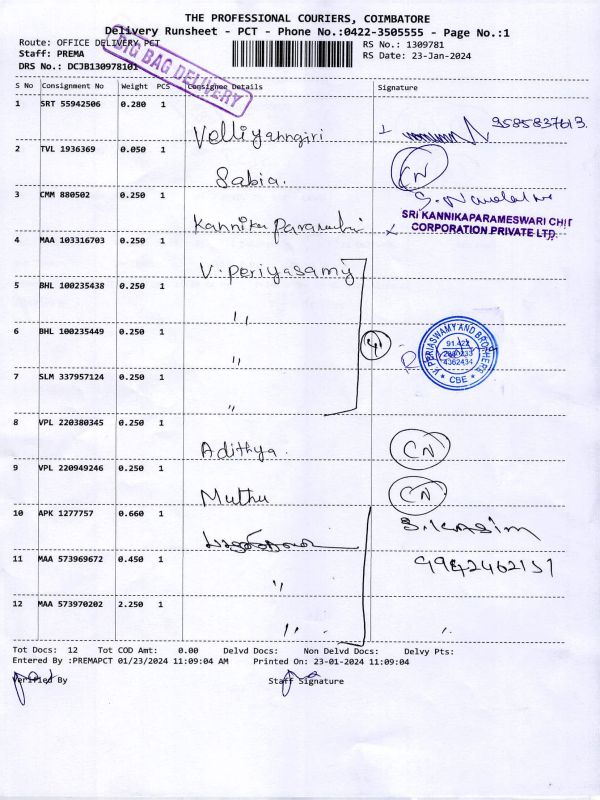 THE PROFESSIONAL COURIERS, COIMBATORE
Delivery Runsheet - PCT - Phone No.:0422-3505555 - Page No.:1
Route: OFFICE DELIVERY PCT
RS No.: 1309781
Staff: PREMA
RS Date: 23-Jan-2024
DRS No.: DCJB130978101
BIG BAG DELIVERY
S No Consignment No Weight PCS Consignee Details Signature
1 SRT 55942506 0.280 1 Velliyanngiri 9585837613.
2 TVL 1936369 0.050 1 Sabia. CN
3 CMM 880502 0.250 1 Kannika
SRI KANNIKAPARAMESWARI CHIT
CORPORATION PRIVATE LTD.
4 MAA 103316703 0.250 1 V. Periyasamy
5 BHL 100235438 0.250 1 "
6 BHL 100235449 0.250 1 " 4
V PERIASWAMY AND BROTHERS
CBE
7 SLM 337957124 0.250 1 "
8 VPL 220380345 0.250 1 Adithya. CN
9 VPL 220949246 0.250 1 Muthu CN
10 APK 1277757 0.660 1 S. KASIM
11 MAA 573969672 0.450 1 "
12 MAA 573970202 2.250 1 "
Tot Docs: 12 Tot COD Amt: 0.00 Delvd Docs: Non Delvd Docs: Delvy Pts:
Entered By :PREMAPCT 01/23/2024 11:09:04 AM Printed On: 23-01-2024 11:09:04
Verified By Staff Signature